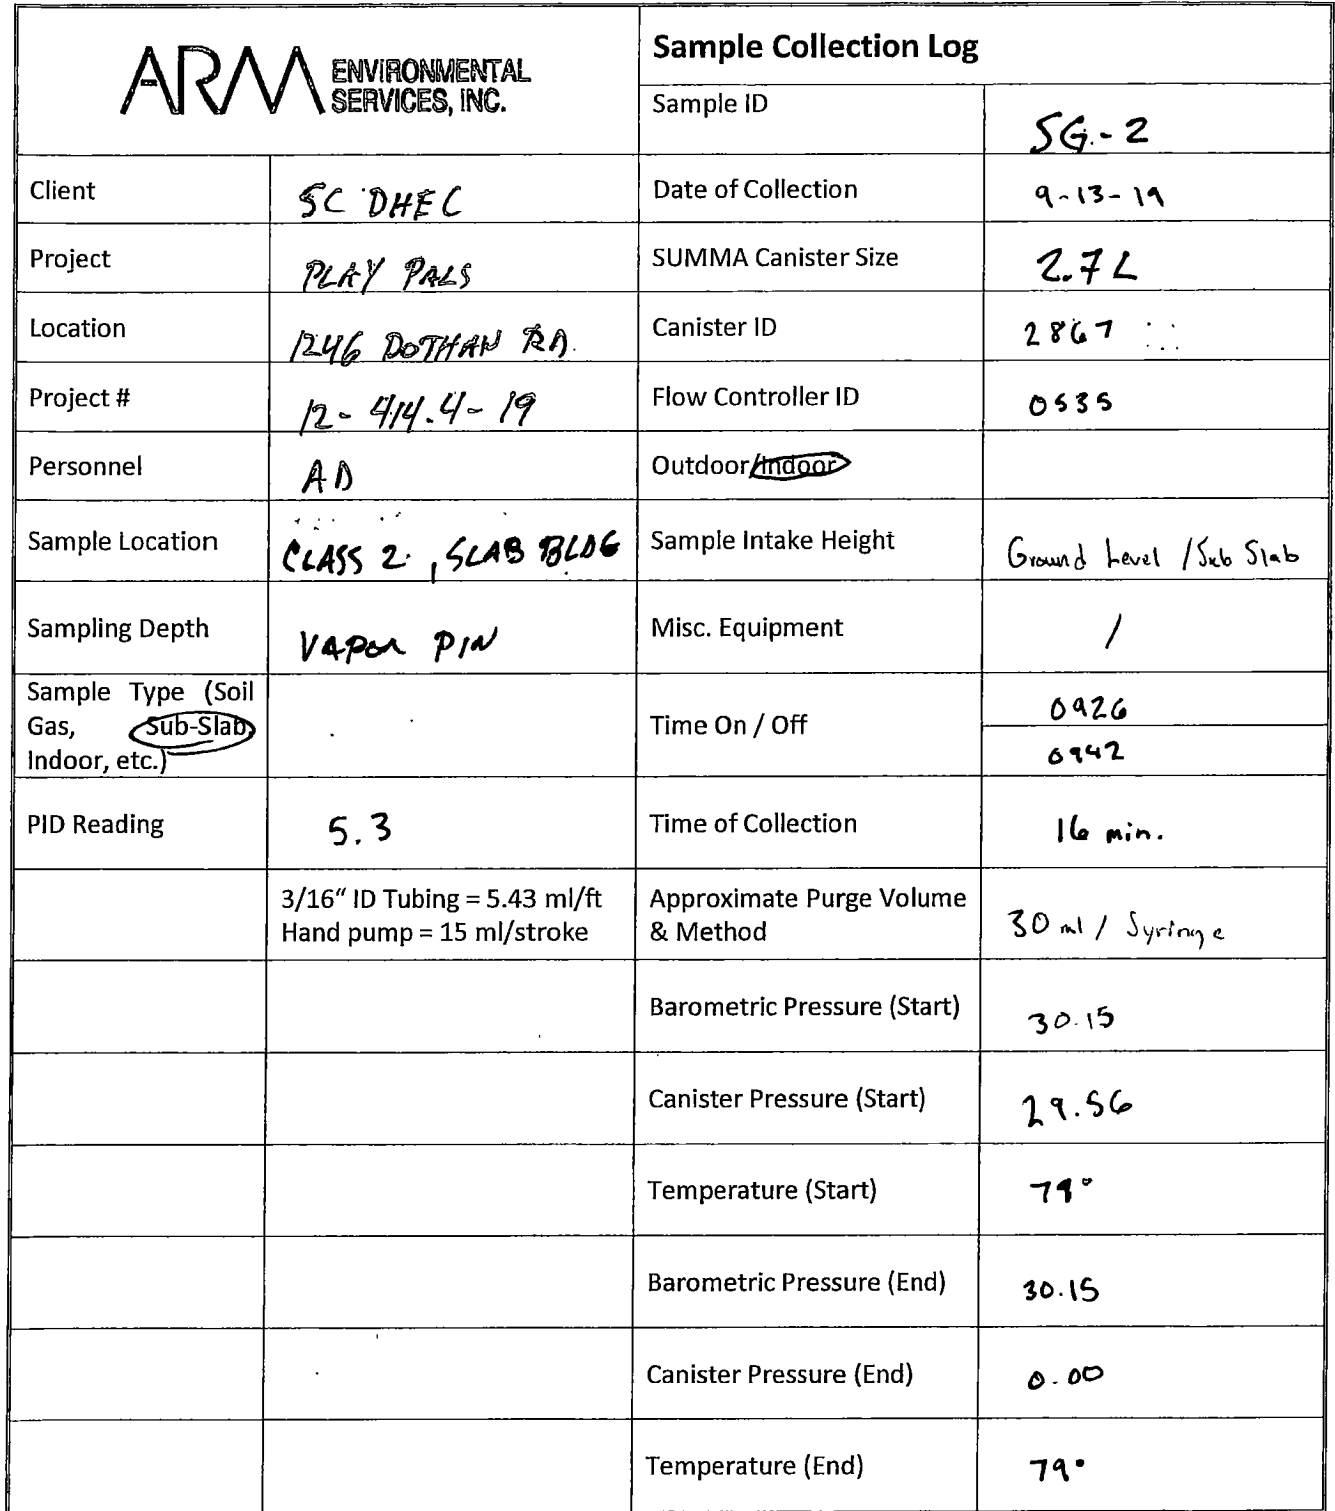 ARM ENVIRONMENTAL
SERVICES, INC.
Sample Collection Log
Sample ID
SG-2
Client
SC DHEC
Date of Collection
9-13-19
Project
PLAY PALS
SUMMA Canister Size
2.7 L
Location
1246 DOTHAN RD.
Canister ID
2867
Project #
12-414.4-19
Flow Controller ID
0535
Personnel
AD
Outdoor/Indoor
Sample Location
CLASS 2, SLAB BLDG
Sample Intake Height
Ground Level / Sub Slab
Sampling Depth
VAPOR PIN
Misc. Equipment
/
Sample Type (Soil
Gas, Sub-Slab,
Indoor, etc.)
Time On / Off
0926
0942
PID Reading
5.3
Time of Collection
16 min.
3/16" ID Tubing = 5.43 ml/ft
Hand pump = 15 ml/stroke
Approximate Purge Volume
& Method
30 ml / Syringe
Barometric Pressure (Start)
30.15
Canister Pressure (Start)
29.56
Temperature (Start)
79°
Barometric Pressure (End)
30.15
Canister Pressure (End)
0.00
Temperature (End)
79°